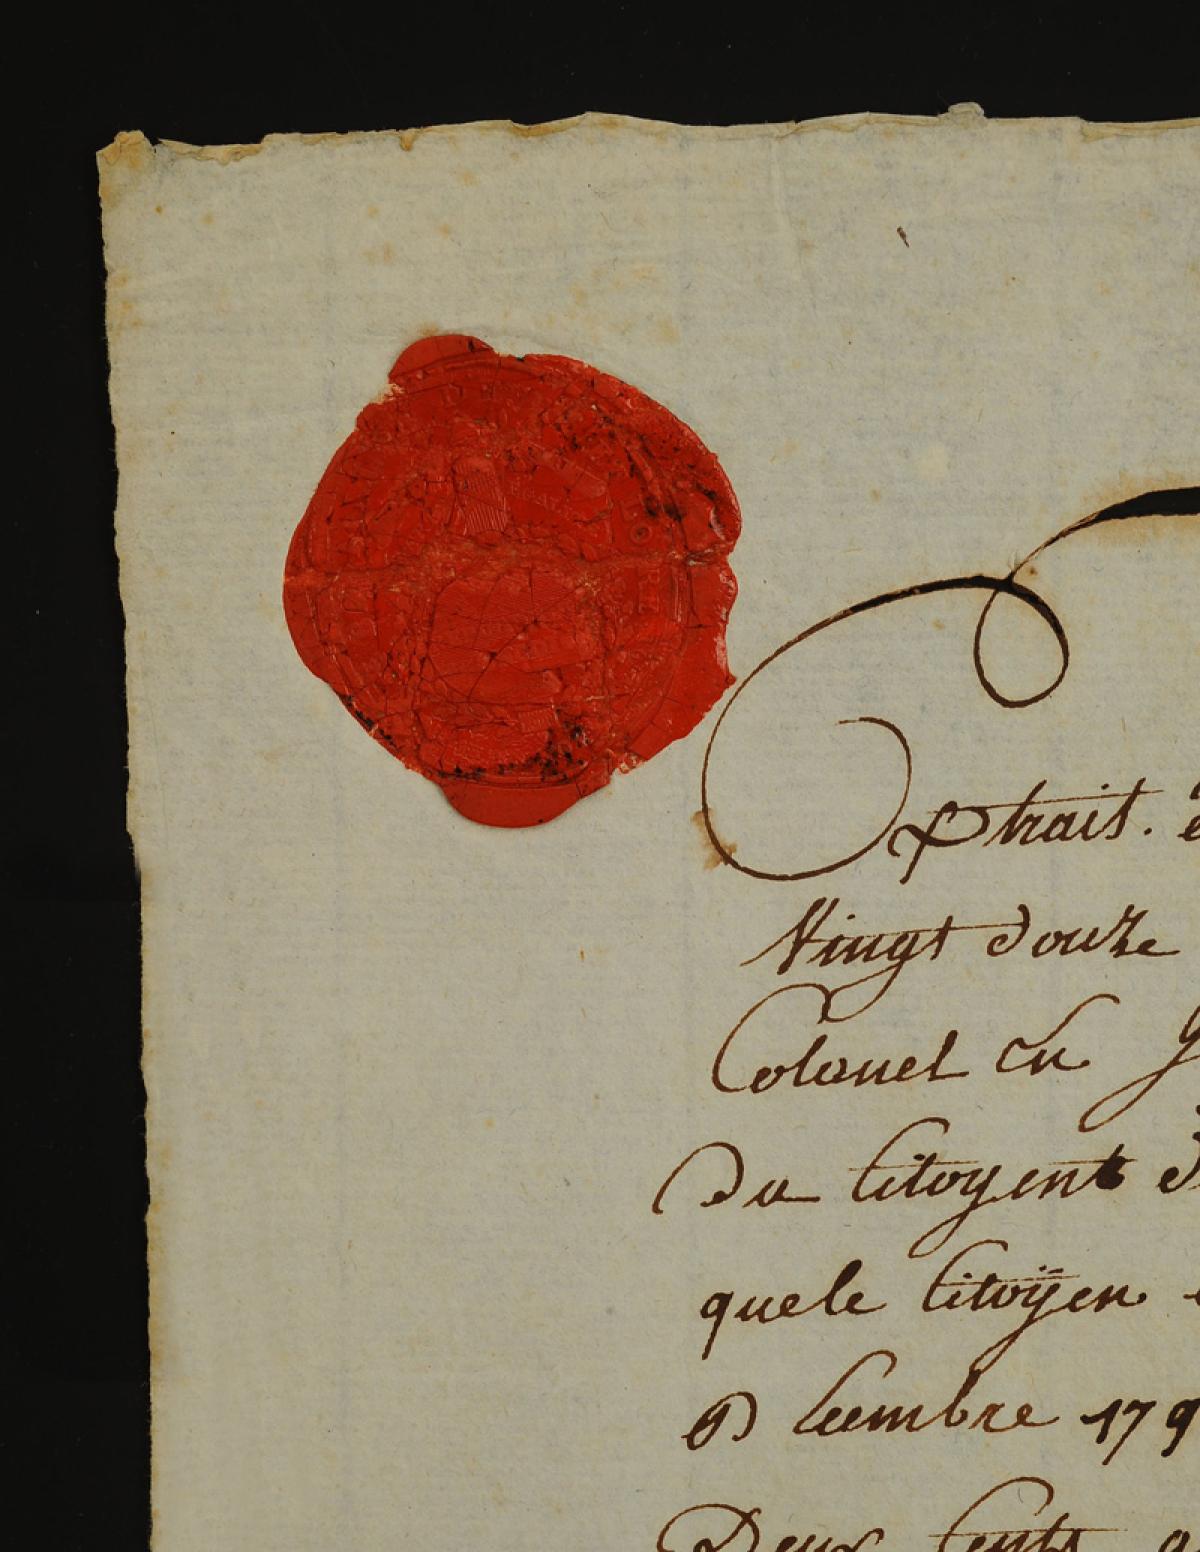 Extrait.
Vingt douze
Colonel en
Du Citoyent
quele Citoÿen
Decembre 179
Deux Cents